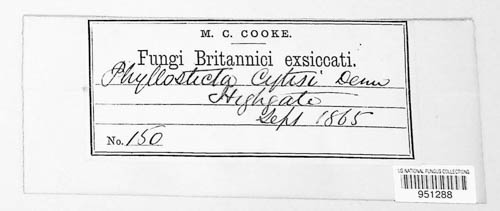 M. C. COOKE.
Fungi Britannici exsiccati.
Phyllosticta Cytisi Desm
Highgate
Sept 1865
No. 150
US NATIONAL FUNGUS COLLECTIONS
951288